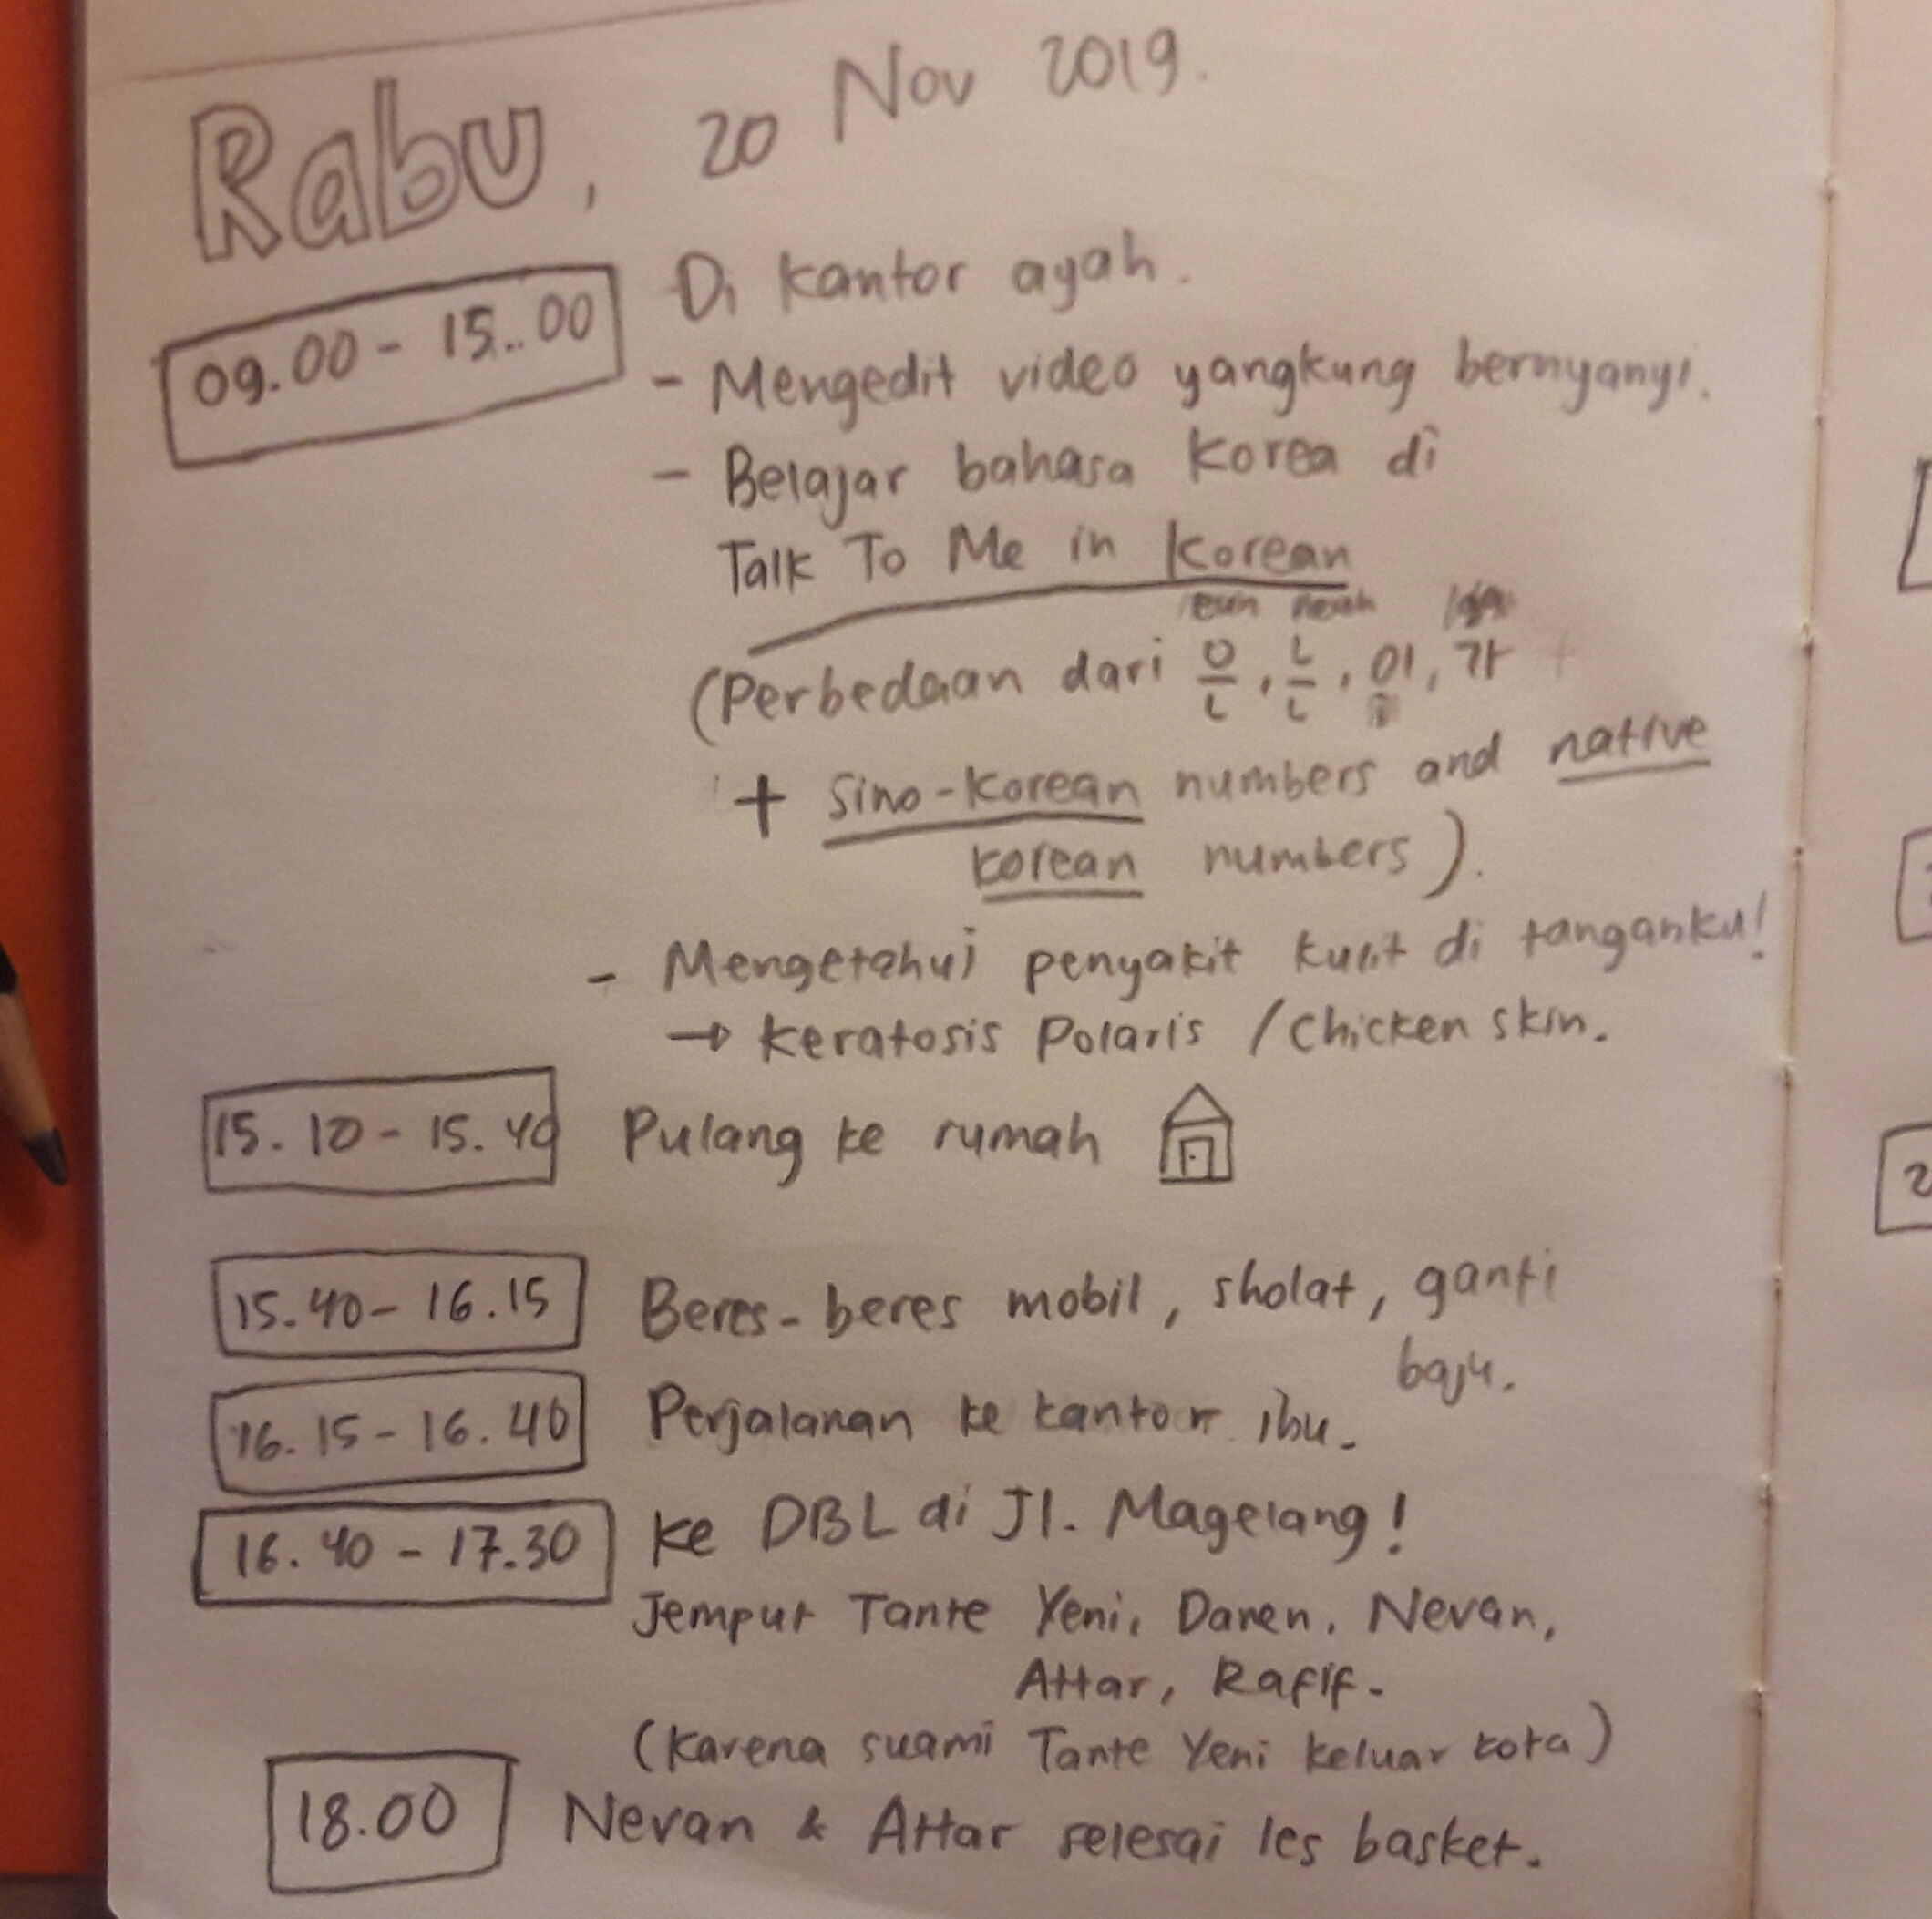 Rabu, 20 Nov 2019.
09.00 - 15..00 Di kantor ayah.
- Mengedit video yangkung bernyanyi.
- Belajar bahasa Korea di
Talk To Me in Korean
eun neun
(Perbedaan dari 은, 는, 이, 가
+ Sino-Korean numbers and native
korean numbers).
- Mengetahui penyakit kulit di tanganku!
→ Keratosis Polaris / Chicken skin.
15.10 - 15.40 Pulang ke rumah
15.40 - 16.15 Beres-beres mobil, sholat, ganti
baju.
16.15 - 16.40 Perjalanan ke kantor ibu.
16.40 - 17.30 Ke DBL di Jl. Magelang!
Jemput Tante Yeni, Daren, Nevan,
Attar, Rafif.
(Karena suami Tante Yeni keluar kota)
18.00 Nevan & Attar selesai les basket.